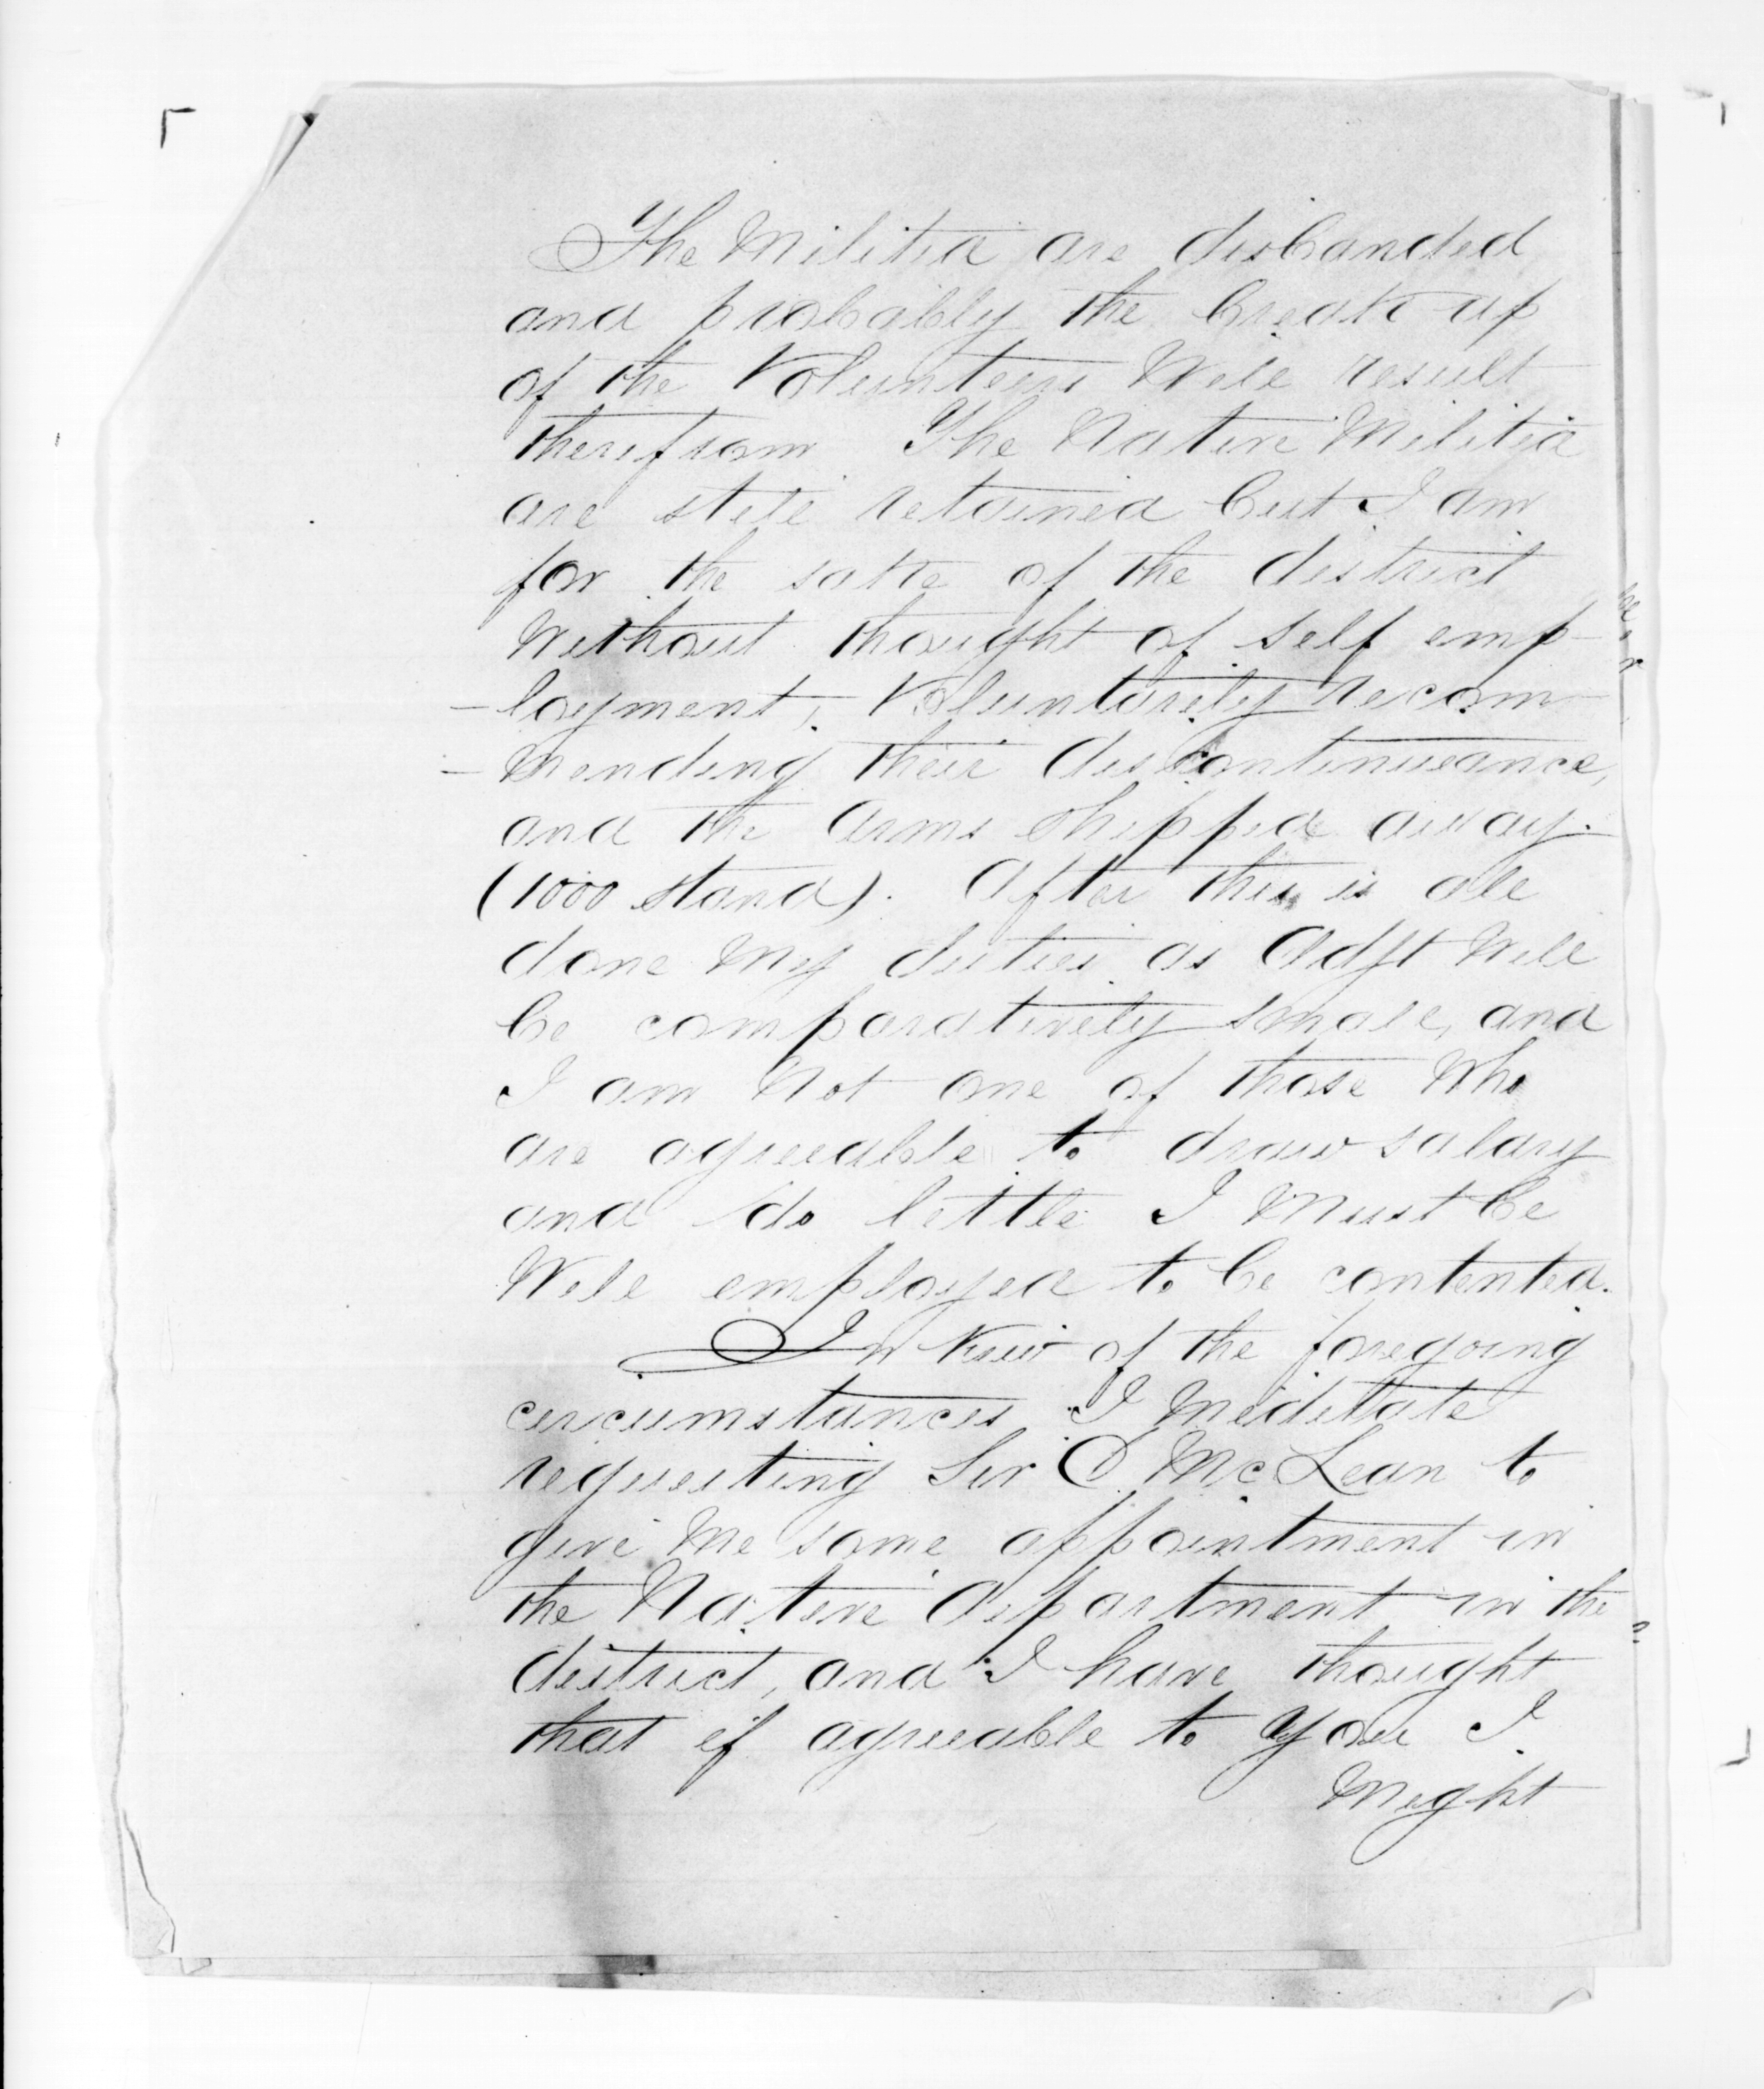 The Militia are disbanded
and probably the break up
of the Volunteers Will result
therefrom. The Native Militia
are still retained but I am
for the sake of the district
Without thought of self emp-
-loyment, Voluntarily recom-
-mending their discontinueance,
and the Arms shipped away.
(1000 stand). After this is all
done My duties as Adjt Will
be comparatively small, and
I am Not one of those Who
are agreeable to draw salary
and do little I Must be
Well employed to be contented.
In View of the foregoing
circumstances I Meditate
requesting Sir D McLean to
give Me some appointment in
the Native Department in the
district, and I have thought
that if agreeable to You I
Might